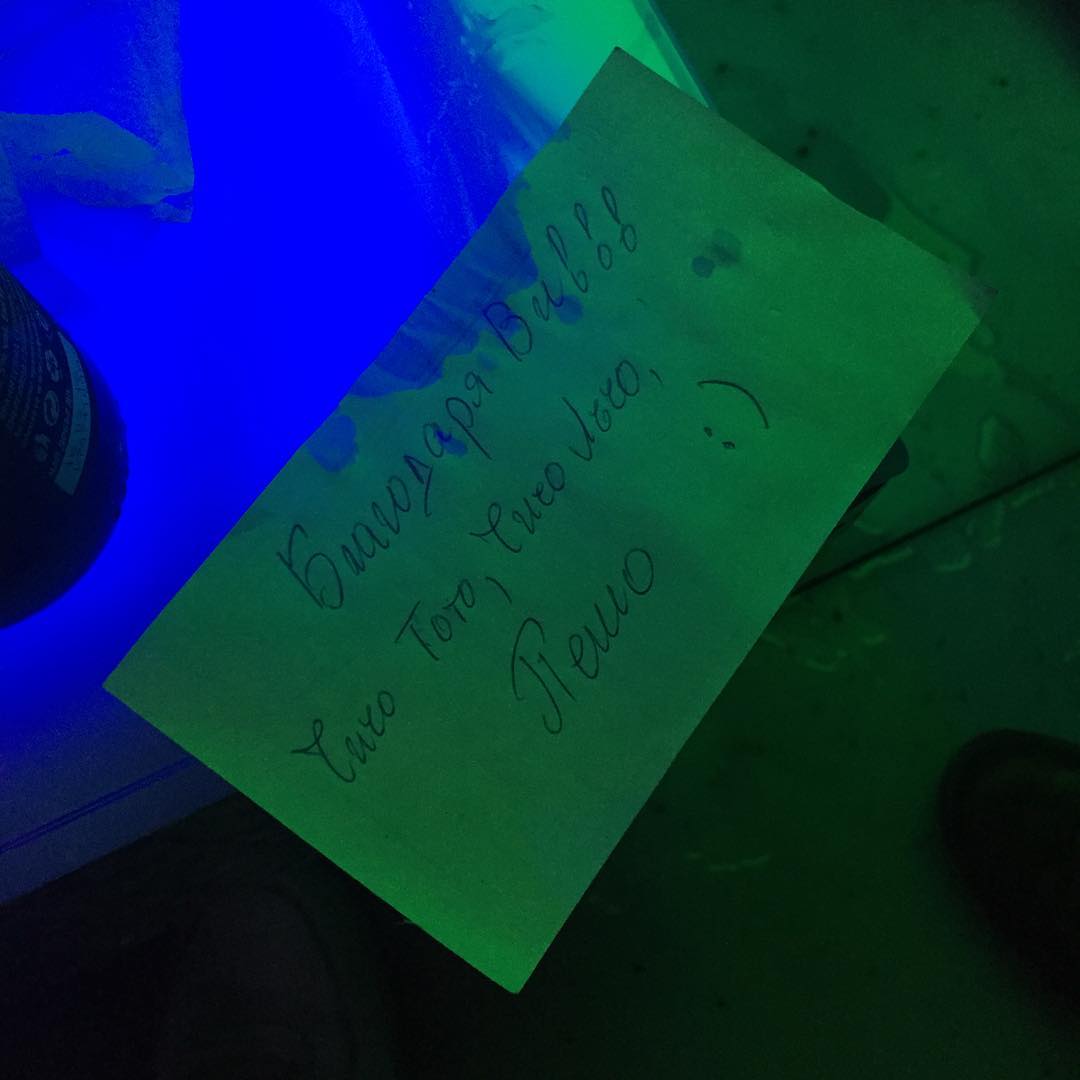 Благодаря Ви!
Чичо Тото, Чичо Льчо,
Пешо :)